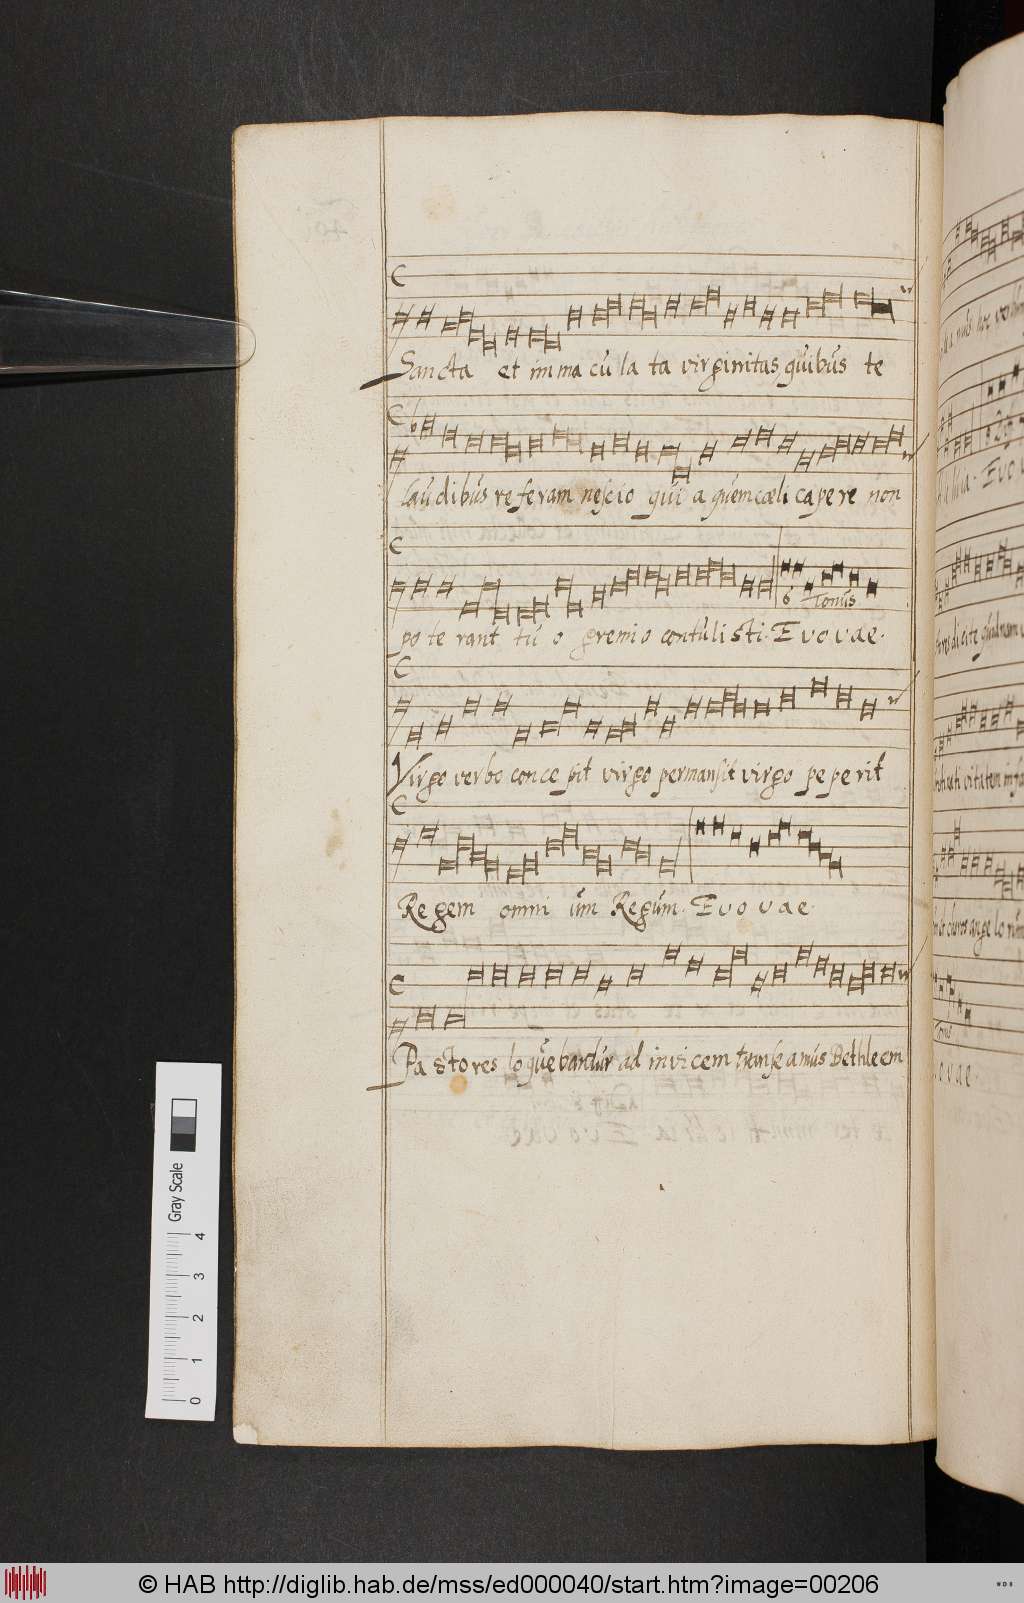 Sancta et immaculata virginitas quibus te
laudibus referam nescio quia quem cæli capere non
6 Tonus
poterant tuo gremio contulisti. Evovae.
Virgo verbo concepit virgo permansit virgo peperit
Regem omnium Regum. Evovae.
Pastores loquebantur ad invicem transeamus Bethleem
Gray Scale
0 1 2 3 4
© HAB http://diglib.hab.de/mss/ed000040/start.htm?image=00206